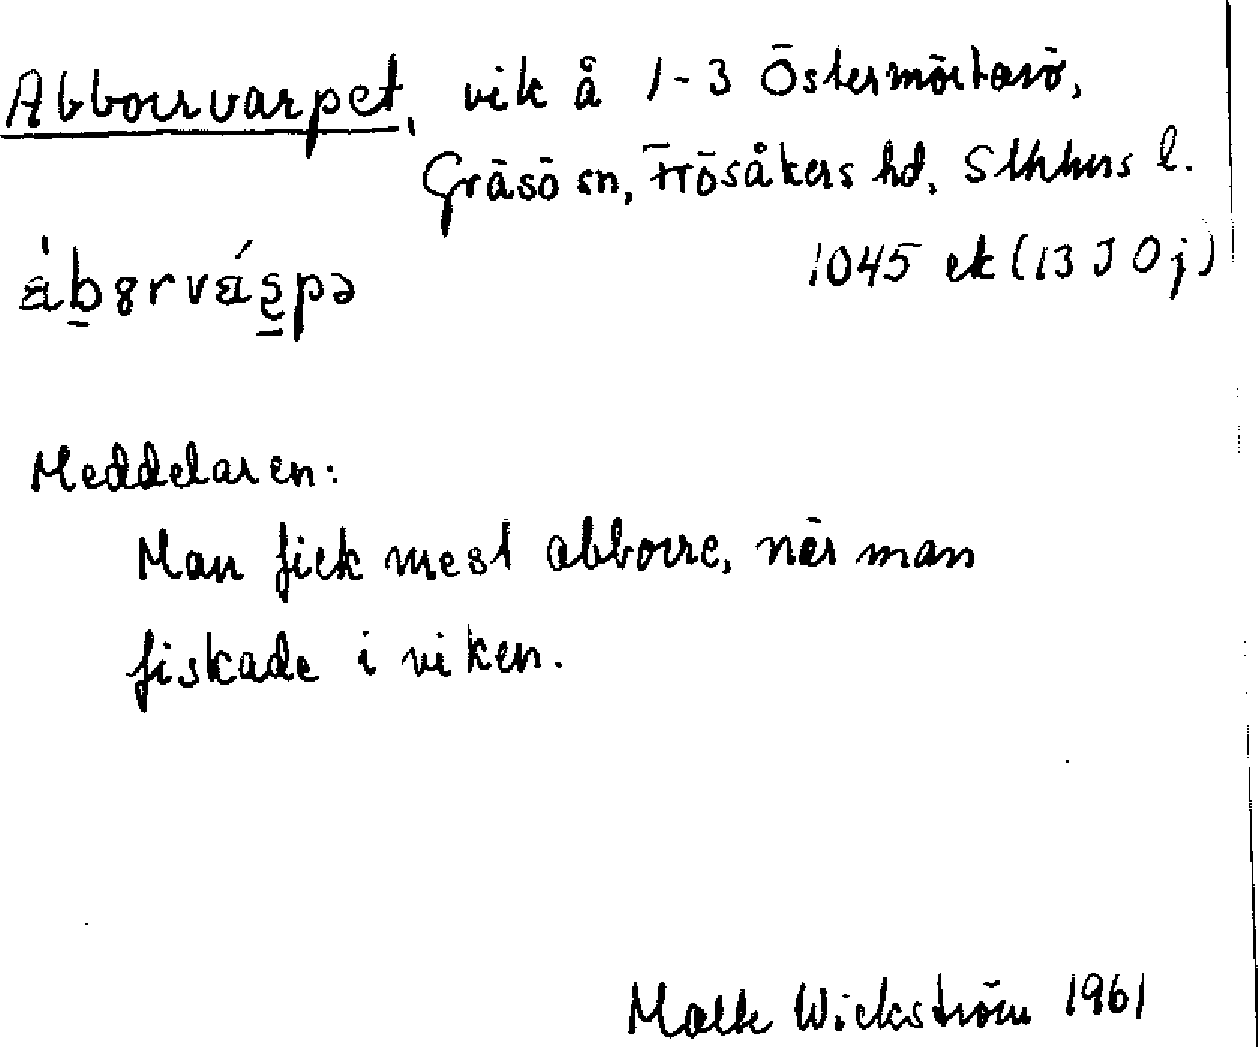 Abborrvarpet, vik å 1-3 Östermörtarö,
Gräsö sn, Frösåkers hd, Sthlms l.
1045 ek (13 I 0 j)
Meddelaren:
Man fick mest abborre, när man
fiskade i viken.
Malte Wickström 1961